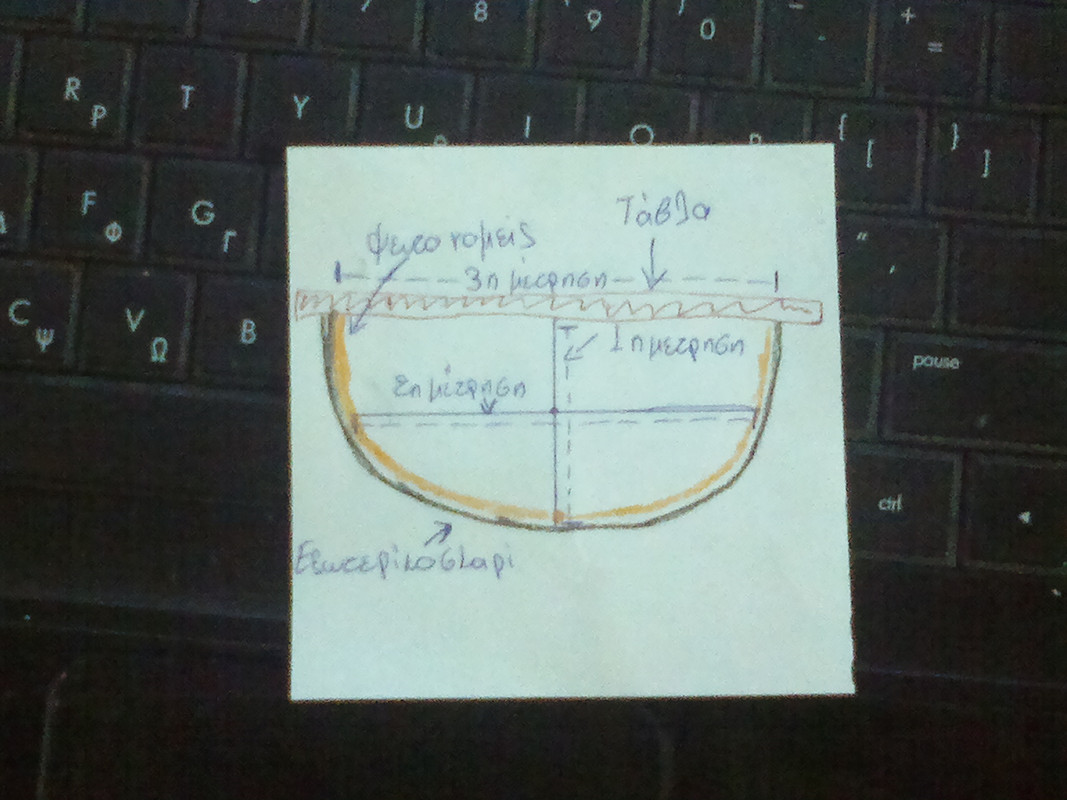 8 9 0 - + =
R P T Y U I O { [ } ]
F Φ G Γ " ,
C Ψ V Ω B
pause
ctrl
Τάβλα
ψευτο νομείς
3η μέτρηση
1η μετρηση
2η μέτρηση
Εξωτερικό σκαρί